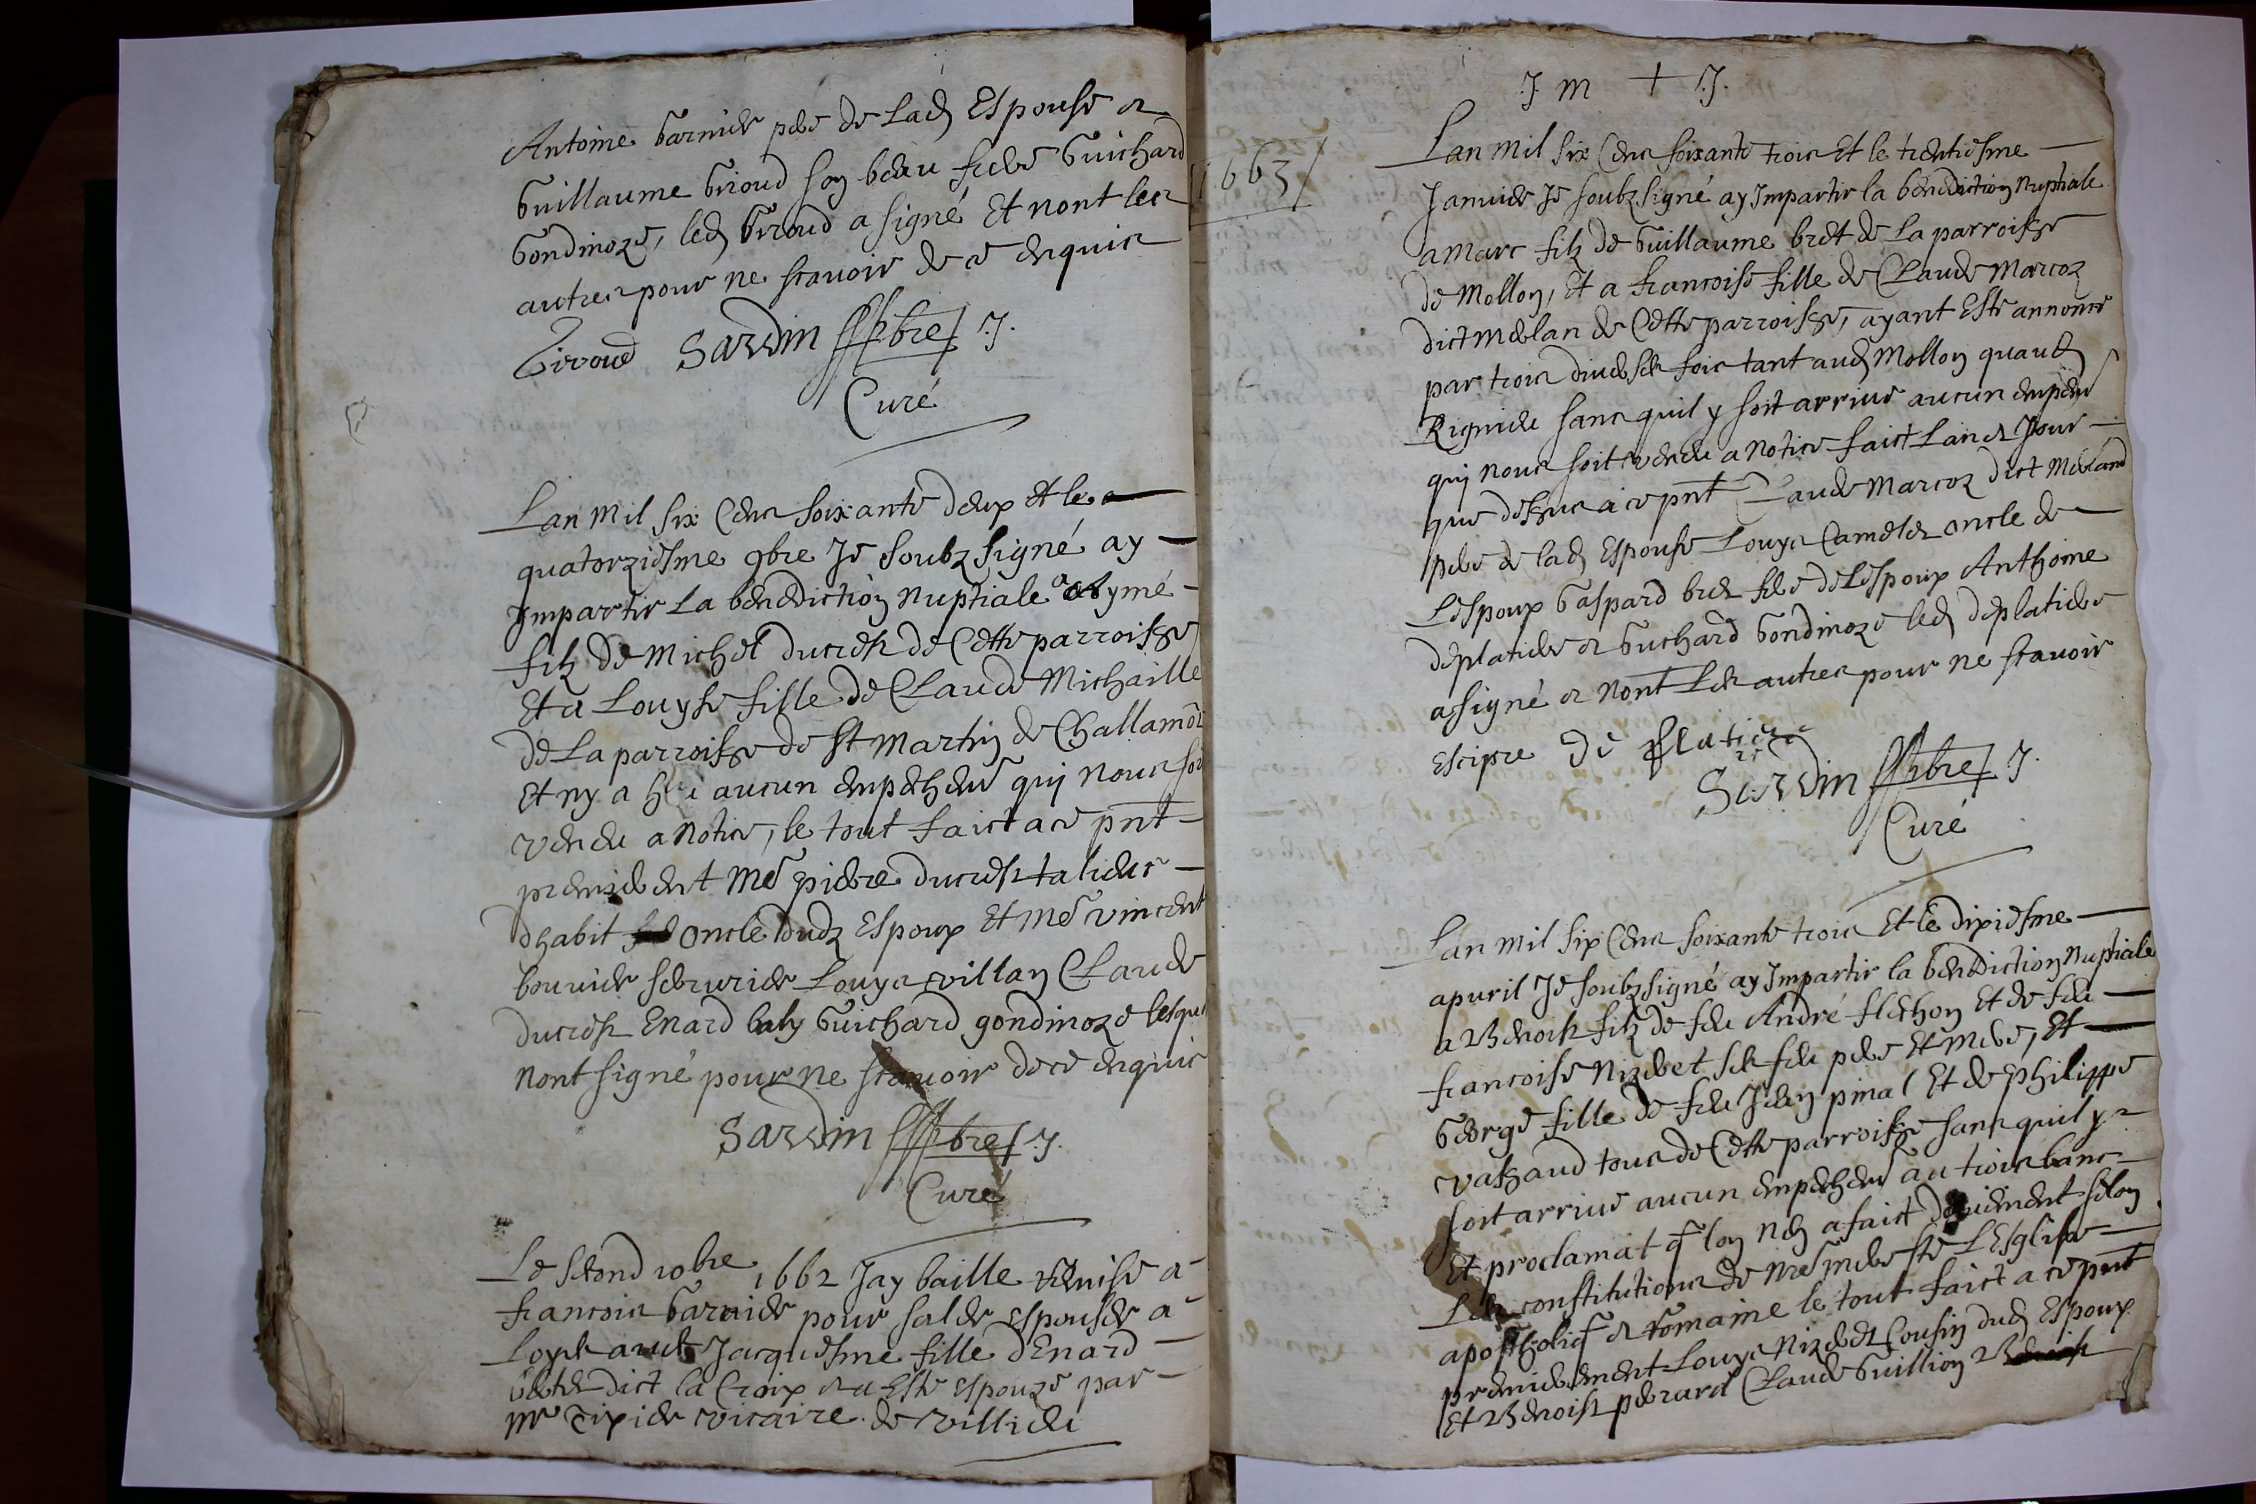 Antoine Garnier pere de lad Espouse et
Guillaume Giroud son beau frere Guichard
Gondinoze, led Giroud a signé Et nont les
autres pour ne scavoir de ce enquis
Giroud Sardin pbre J.
Curé
Lan mil six Cens soixante deux Et le
quatorziesme 9bre Je soubzsigné ay
Impartir La benediction nuptiale a Aymé
filz de Michel ducrest de Cette parroisse
Et a Louyse fille de Claude Michaille
de La parroisse de St Martin de Challamon
Et ny a heu aucun empechem qui nous soit
venu a notice, le tout faict a ce pnt
premierement Me pierre ducrest talieur
dhabit oncle dudz Espoux Et Me vincent
bouvier serurier Louys villan Claude
ducrest Enard baly Guichard gondinoze lesque
nont signé pour ne scavoir de ce enquis
Sardin pbre J.
Curé
Le second 10bre 1662 Jay baille remise a
francois Garnier pour saler espouser a
Loye avec Jacquesme fille dEnard
dict la Croix et a Este espouzé par
mr Tixier vicaire de Villieu
J m + J.
1663
Lan mil six Cens soixante trois Et le trentiesme
Januier Je soubzsigné ay Impartir la benediction Nuptiale
a Marc filz de Guillaume bret de La parroisse
de Mollon, Et a francoise fille de Claude Marcoz
dict Merlan de Cette parroisse, ayant Esté annonce
par trois diverses fois tant aud Mollon quaud
Rignieu sans quil y soit arrive aucun empem
qui nous soit venu a Notice faict Lan et Jour
que dessus a ce pnt Claude Marcoz dict Merland
pere de lad Espouse Louys Camelet oncle de
Lespoux Gaspard bret frere de Lespoux Anthoine
deplatiere et Guichard Gondinoze led deplatiere
a signé et nont Les autres pour ne scavoir
escipre de platiere
Sardin pbre J.
Curé
Lan mil six Cens soixante trois Et le dixiesme
apvril Je soubzsigné ay Impartir la benediction Nuptiale
a Benoist filz de feu André flechon Et de feu
francoise Nizeret ses feu pere Et mere, Et
George fille de feu Jean pinal Et de philippe
vathaud tous de Cette parroisse sans quil y
soit arrive aucun empechem au trois bans
Et proclamat q lon nen a faict deuement selon
Les constitutions de nre mere ste LEsglise
apostholicq et romaine le tout faict a ce pnt
premierement Louys Nizeret Cousin dud Espoux
Et Benoist perard Claude Guillion